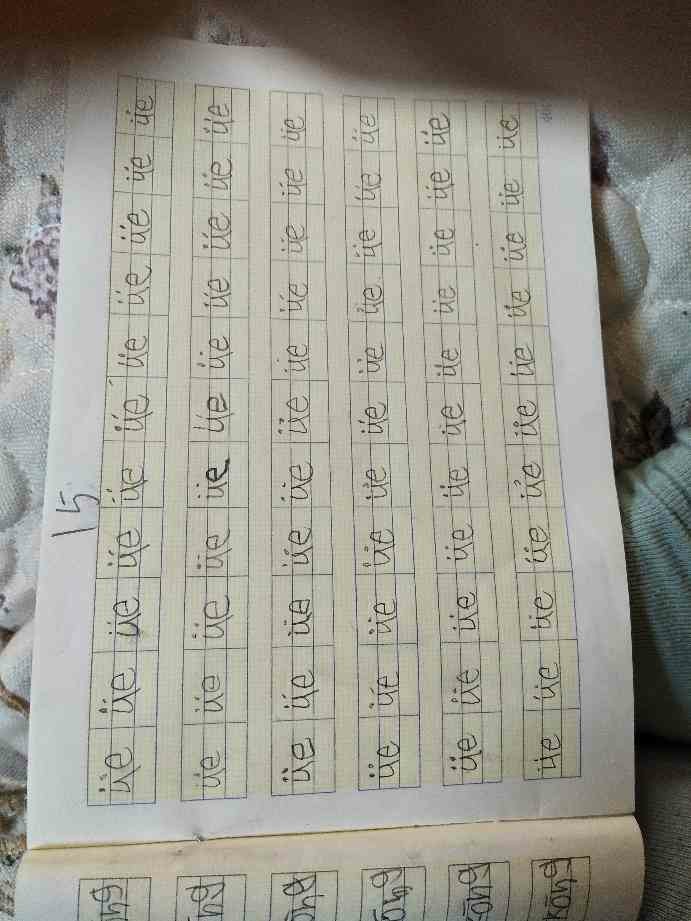 ōng
ōng
ōng
ōng
kōng
kōng
15
üe üe üe üe üe üe üe üe üe üe üe
üe üe üe üe üe üe üe üe üe üe üe
üe üe üe üe üe üe üe üe üe üe üe
üe üe üe üe üe üe üe üe üe üe üe
üe üe üe üe üe üe üe üe üe üe üe
üe üe üe üe üe üe üe üe üe üe üe